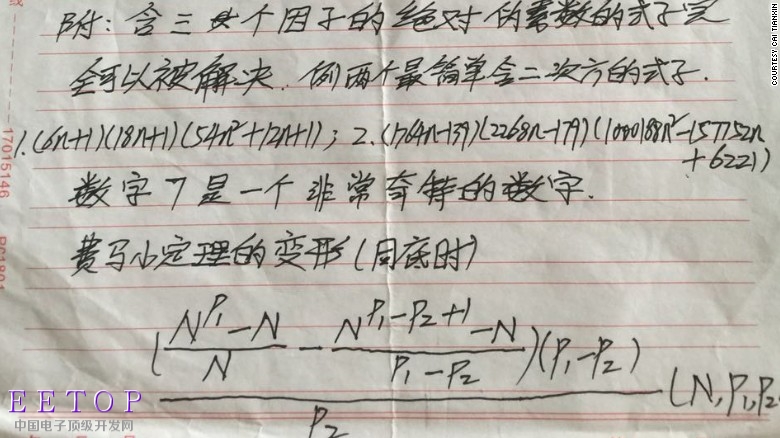 附：含三个因子的绝对伪素数的式子完
全可以被解决．例两个最简单含二次方的式子．
1.(6n+1)(18n+1)(54n²+12n+1)；2.(1764n-139)(2268n-179)(1000188n²-157752n
+6221)
数字7是一个非常奇特的数字．
费马小定理的变形(同底时)
N^P₁-N N^P₁-P₂+1-N
( — )(P₁-P₂)
N P₁-P₂
P₂ (N,P₁,P₂
17015146
COURTESY CAI TIANXIN
EETOP
中国电子顶级开发网